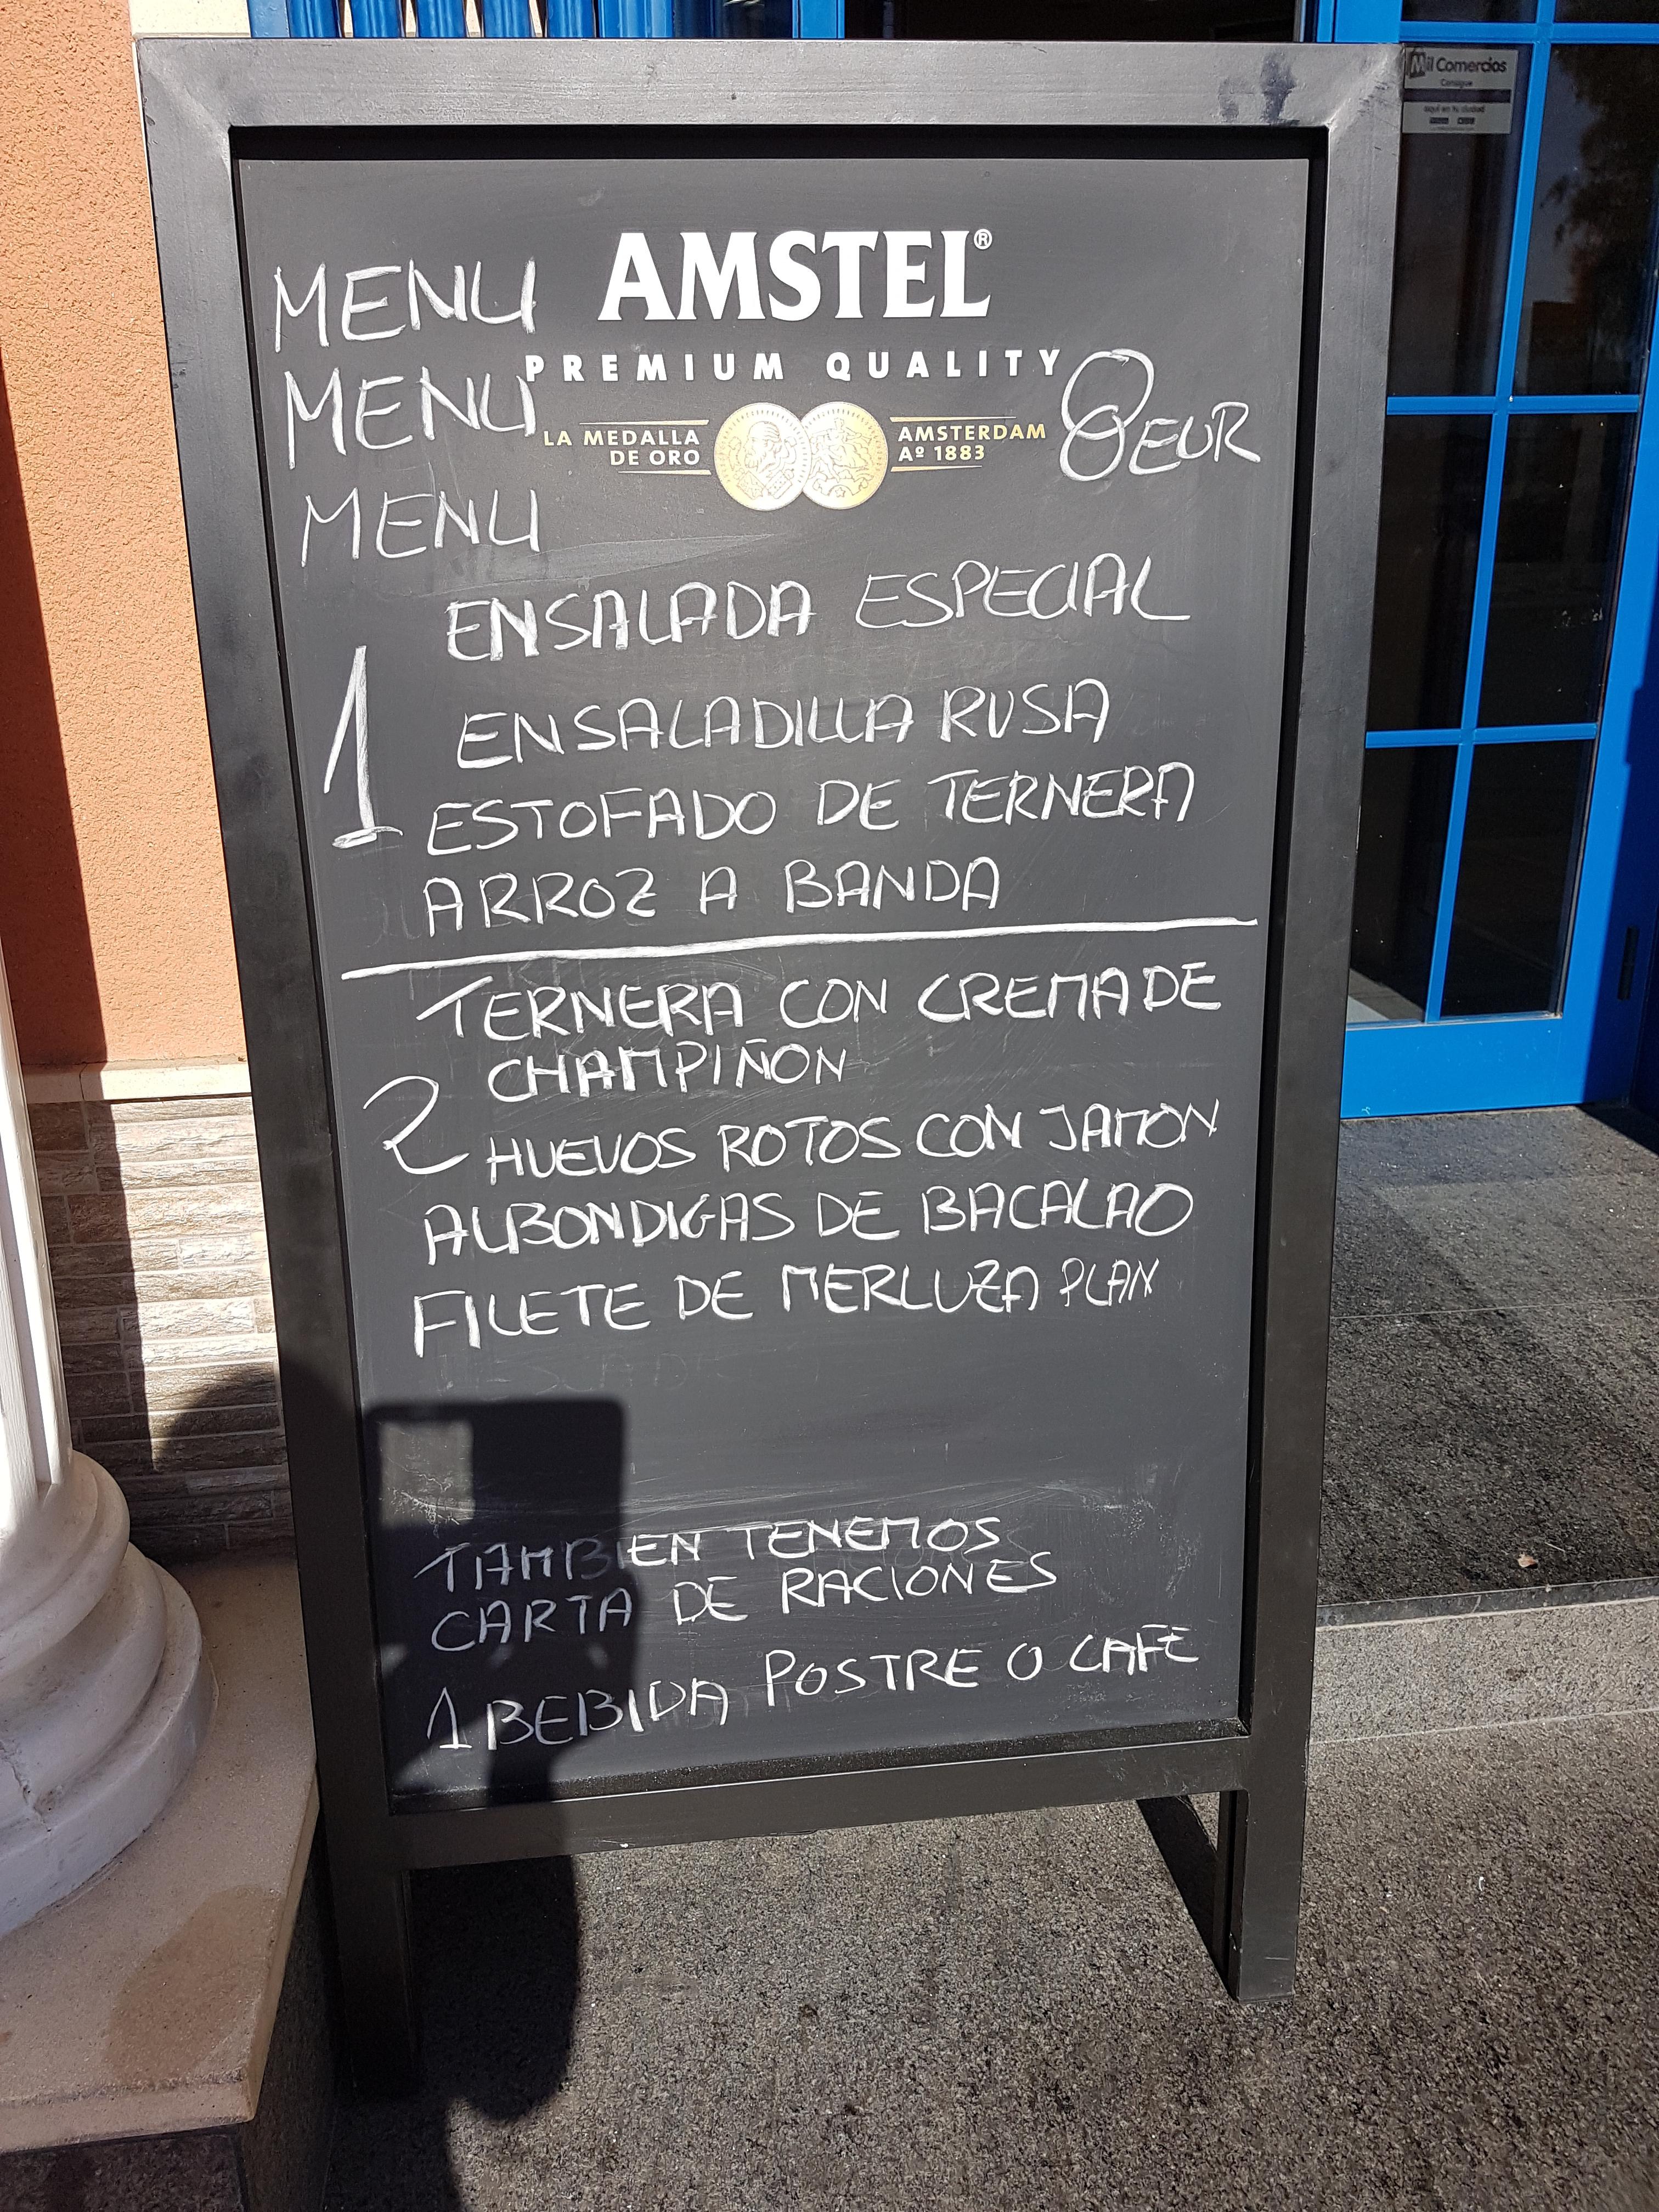 MENU
AMSTEL®
PREMIUM QUALITY
MENU
LA MEDALLA DE ORO
AMSTERDAM Aº 1883
8 EUR
MENU
1
ENSALADA ESPECIAL
ENSALADILLA RUSA
ESTOFADO DE TERNERA
ARROZ A BANDA
2
TERNERA CON CREMA DE
CHAMPIÑON
HUEVOS ROTOS CON JAMON
ALBONDIGAS DE BACALAO
FILETE DE MERLUZA PLAN
TAMBIEN TENEMOS
CARTA DE RACIONES
1 BEBIDA POSTRE O CAFE
Mil Comercios
Consigue
aquí en tu ciudad